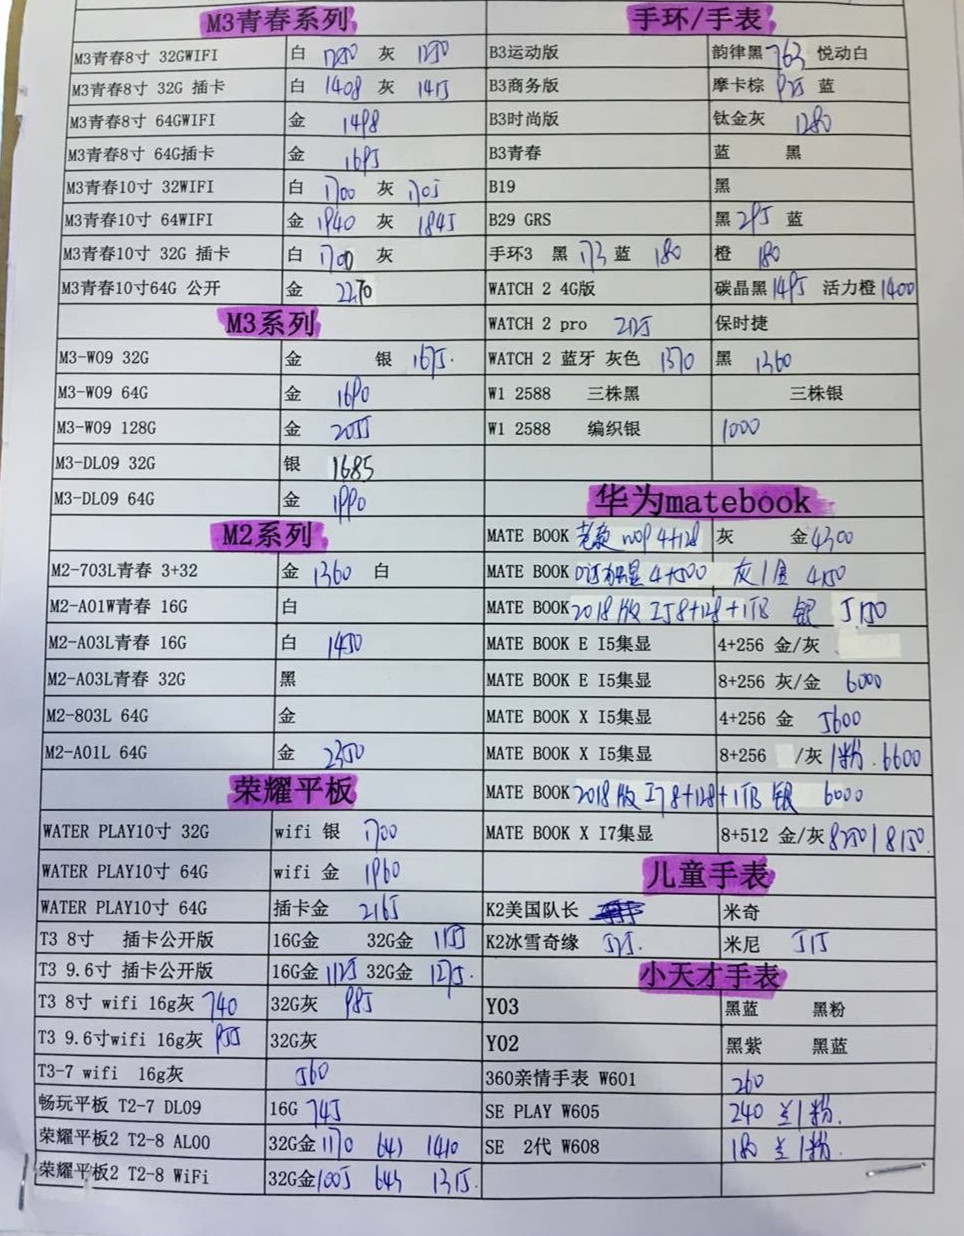 M3青春系列
M3青春8寸 32GWIFI 白 1250 灰 1250
M3青春8寸 32G 插卡 白 1408 灰 1415
M3青春8寸 64GWIFI 金 1498
M3青春8寸 64G插卡 金 1695
M3青春10寸 32WIFI 白 1700 灰 1705
M3青春10寸 64WIFI 金 1940 灰 1845
M3青春10寸 32G 插卡 白 1700 灰
M3青春10寸64G 公开 金 2270
M3系列
M3-W09 32G 金 银 1675.
M3-W09 64G 金 1690
M3-W09 128G 金 2055
M3-DL09 32G 银 1685
M3-DL09 64G 金 1990
M2系列
M2-703L青春 3+32 金 1360 白
M2-A01W青春 16G 白
M2-A03L青春 16G 白 1450
M2-A03L青春 32G 黑
M2-803L 64G 金
M2-A01L 64G 金 2350
荣耀平板
WATER PLAY10寸 32G wifi 银 1700
WATER PLAY10寸 64G wifi 金 1960
WATER PLAY10寸 64G 插卡金 2165
T3 8寸 插卡公开版 16G金 32G金 1155
T3 9.6寸 插卡公开版 16G金 1125 32G金 1275.
T3 8寸 wifi 16g灰 740 32G灰 985
T3 9.6寸wifi 16g灰 955 32G灰
T3-7 wifi 16g灰 560
畅玩平板 T2-7 DL09 16G 745
荣耀平板2 T2-8 AL00 32G金 1170 1410
荣耀平板2 T2-8 WiFi 32G金 1005 1315.
手环/手表
B3运动版 韵律黑 763 悦动白
B3商务版 摩卡棕 925 蓝
B3时尚版 钛金灰 1280
B3青春 蓝 黑
B19 黑
B29 GRS 黑 295 蓝
手环3 黑 173 蓝 180 橙 180
WATCH 2 4G版 碳晶黑 1495 活力橙 1400
WATCH 2 pro 2125 保时捷
WATCH 2 蓝牙 灰色 1370 黑 1360
W1 2588 三株黑 三株银
W1 2588 编织银 1000
华为matebook
MATE BOOK 老款 4+128 灰 金 4300
MATE BOOK 4+500 灰/金 4150
MATE BOOK 2018版 I5 8+128+1TB 银 5150
MATE BOOK E I5集显 4+256 金/灰
MATE BOOK E I5集显 8+256 灰/金 6000
MATE BOOK X I5集显 4+256 金 5600
MATE BOOK X I5集显 8+256 /灰/粉.6600
MATE BOOK 2018版 I7 8+128+1TB 银 6000
MATE BOOK X I7集显 8+512 金/灰 8250/8150.
儿童手表
K2美国队长 米奇
K2冰雪奇缘 525. 米尼 515
小天才手表
Y03 黑蓝 黑粉
Y02 黑紫 黑蓝
360亲情手表 W601 260
SE PLAY W605 240 兰/粉.
SE 2代 W608 180 兰/粉.